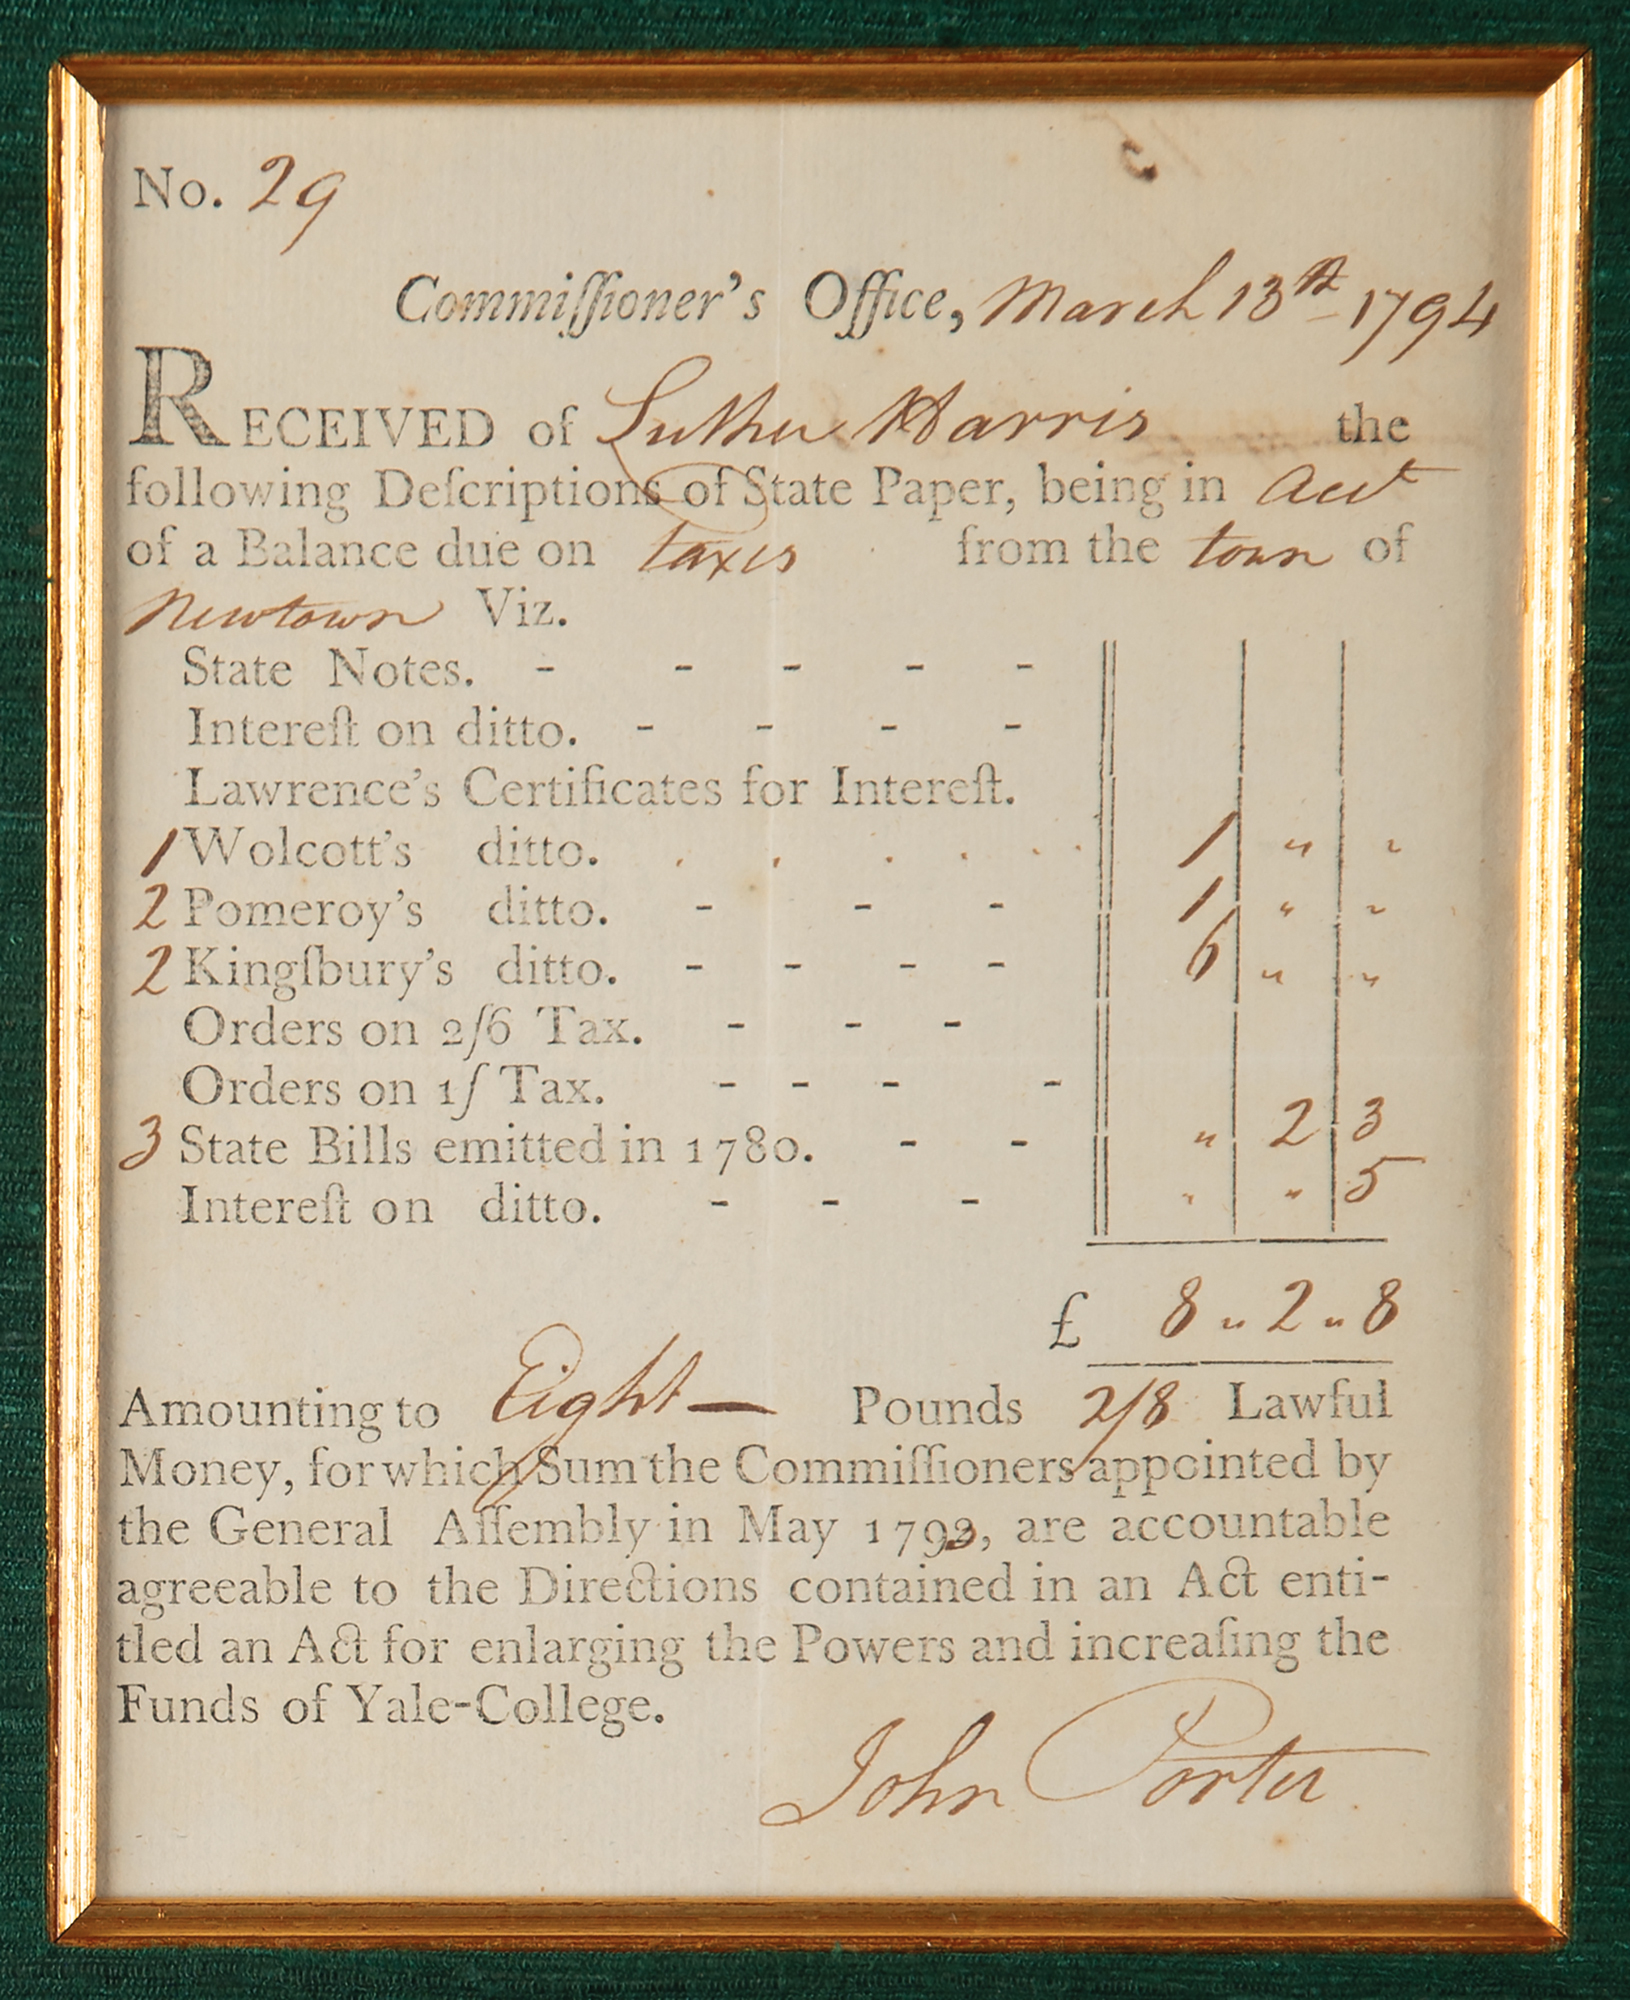 No. 29
Commiſſioner's Office, March 13th 1794
RECEIVED of Luther Harris the
following Deſcriptions of State Paper, being in Acct
of a Balance due on taxes from the town of
Newtown Viz.
State Notes. - - - - -
Intereſt on ditto. - - - -
Lawrence's Certificates for Intereſt.
1 Wolcott's ditto. . . . . . . 1 " "
2 Pomeroy's ditto. - - - 1 " "
2 Kingſbury's ditto. - - - - 6 " "
Orders on 2ſ6 Tax. - - -
Orders on 1ſ Tax. - - - -
3 State Bills emitted in 1780. - - " 2 3
Intereſt on ditto. - - - " " 5
£ 8 " 2 " 8
Amounting to Eight — Pounds 2/8 Lawful
Money, for which Sum the Commiſſioners appointed by
the General Aſſembly in May 1793, are accountable
agreeable to the Directions contained in an Act enti-
tled an Act for enlarging the Powers and increaſing the
Funds of Yale-College.
John Porter